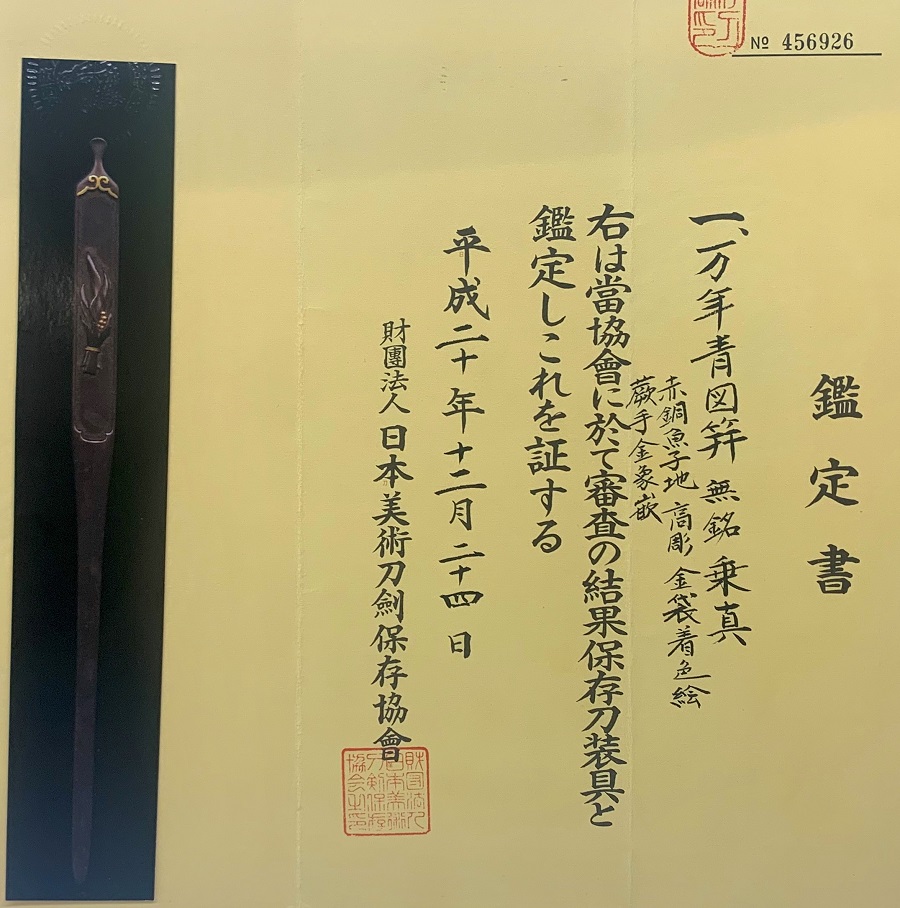 № 456926
鑑定書
一、万年青図笄 無銘 乗真
赤銅魚子地 高彫 金袋着色絵
蕨手金象嵌
右は當協會に於て審査の結果保存刀装具と
鑑定しこれを証する
平成二十年十二月二十四日
財團法人日本美術刀劍保存協會